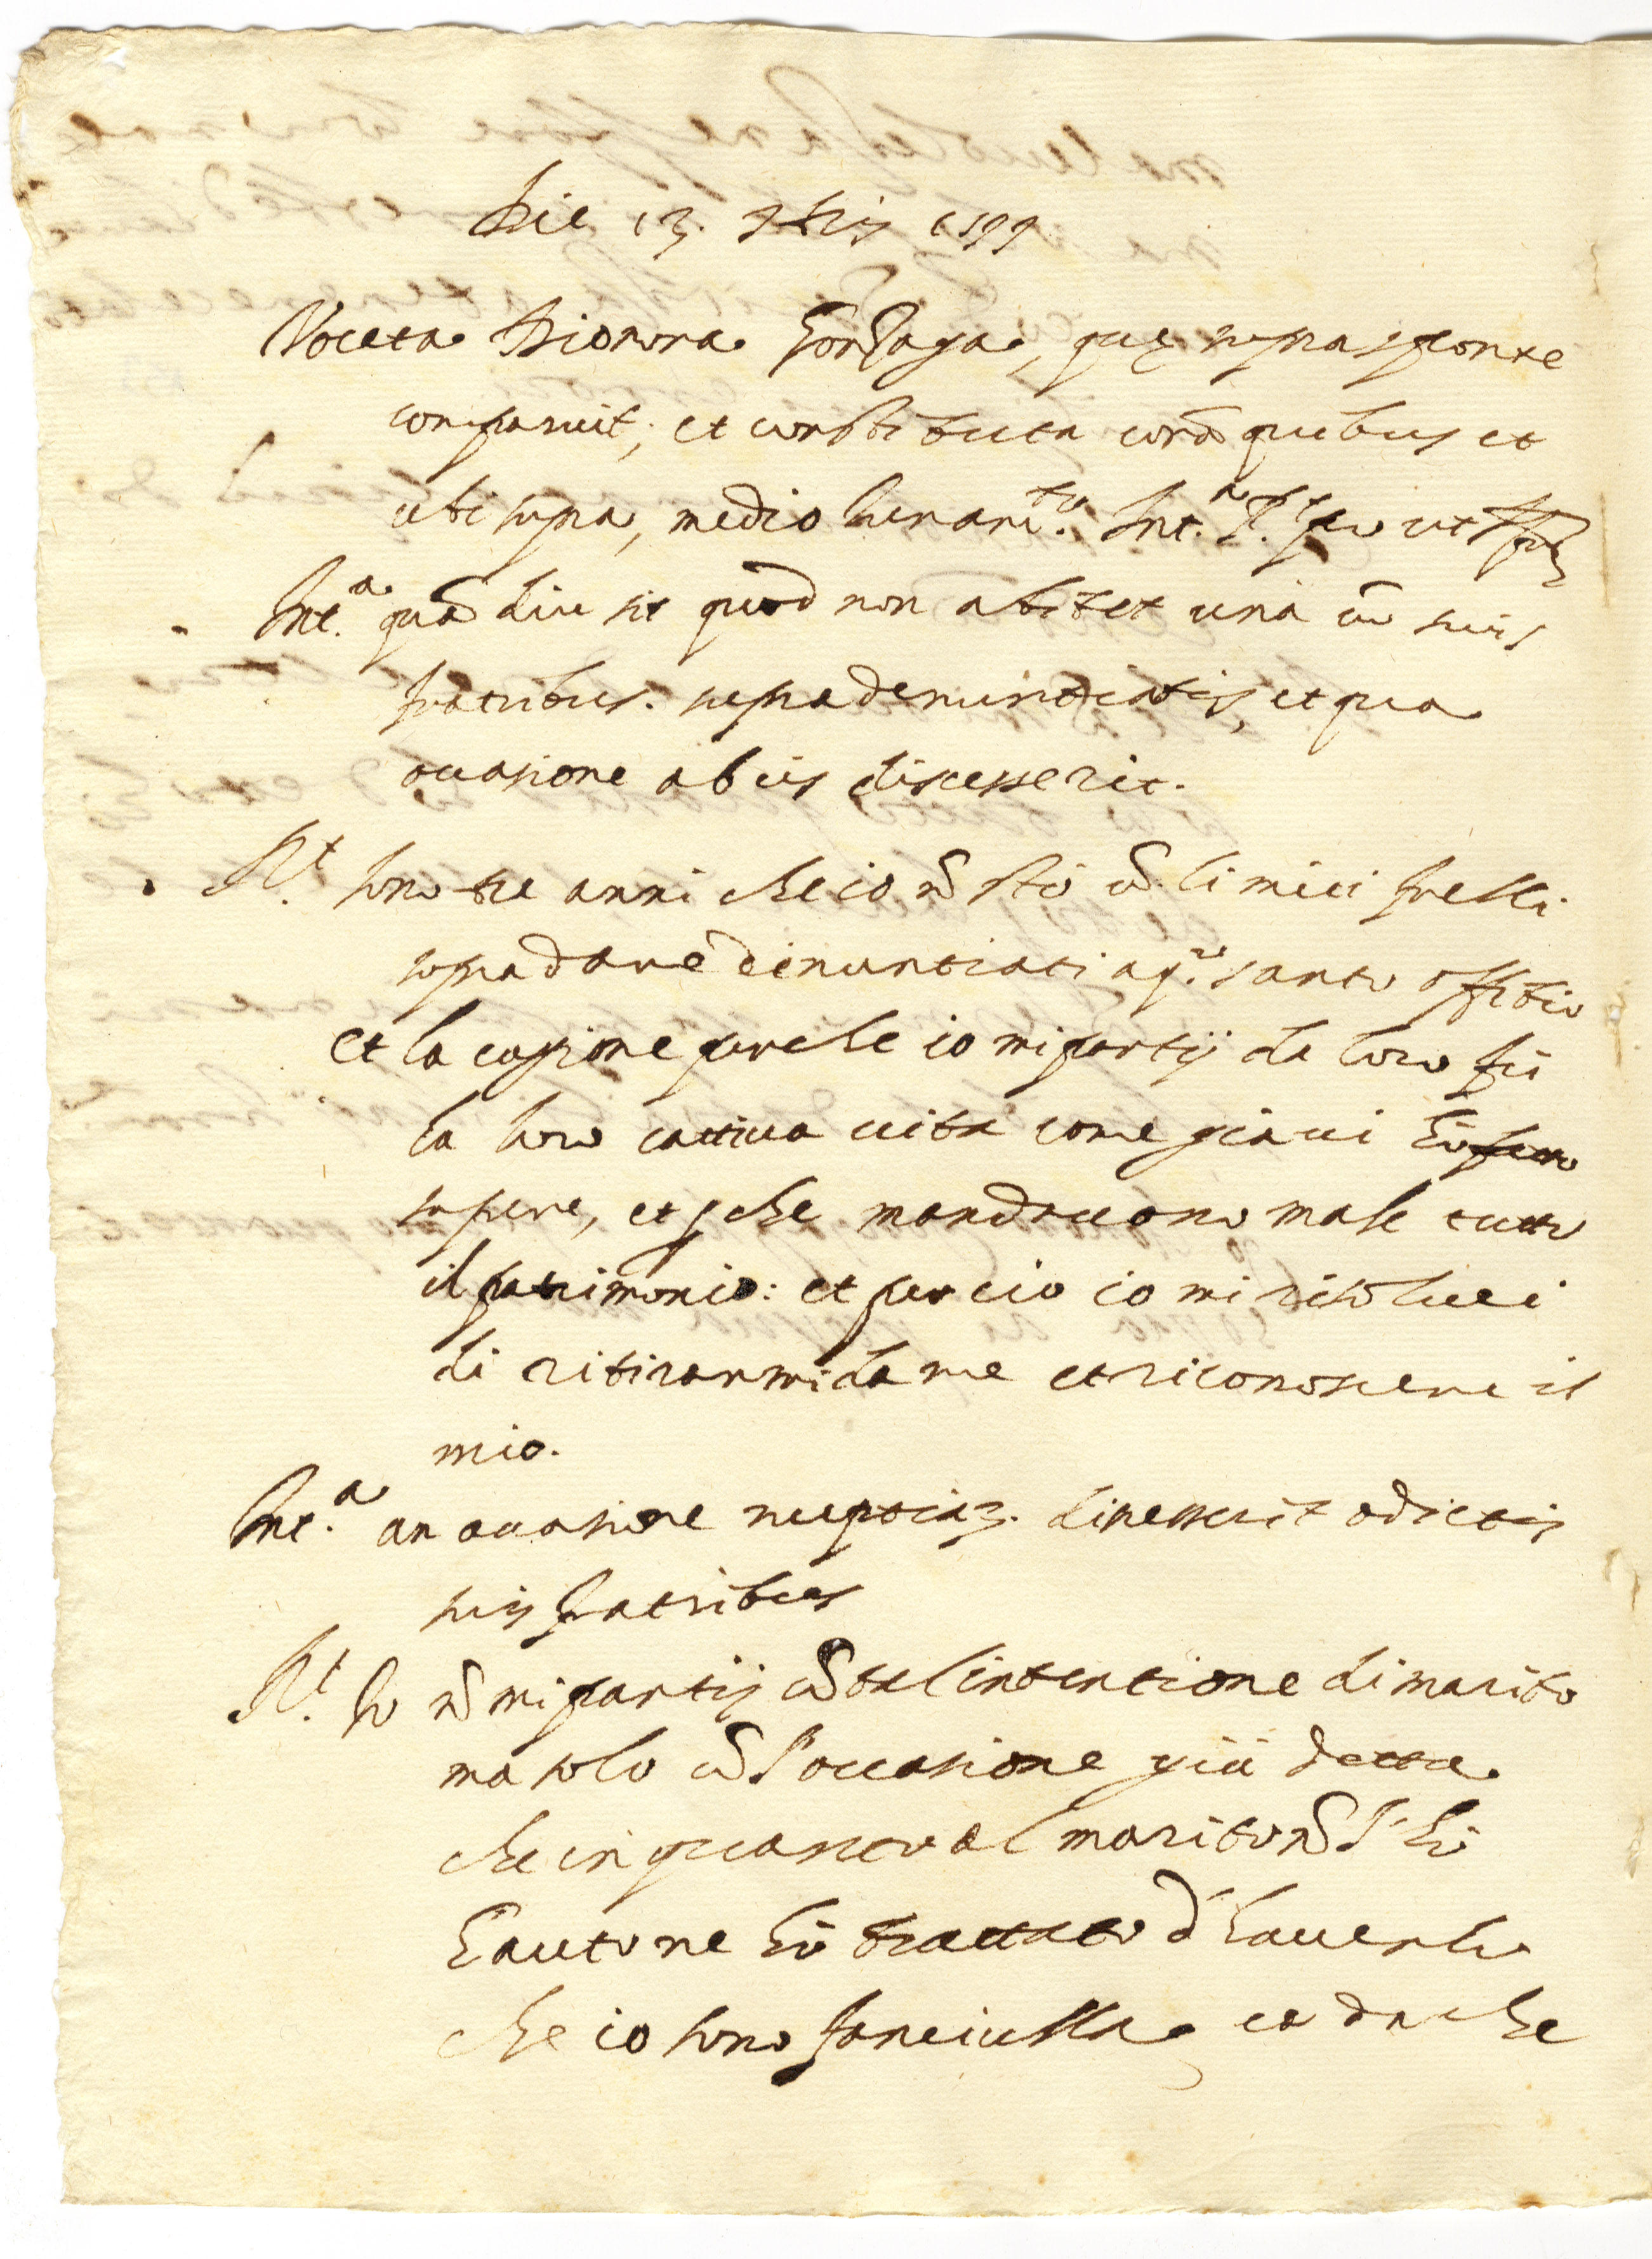 Die 13. 9bris 1599
Vocata Dionora Gonzaga, quę supra sponte
comparuit, et constituta corā quibus et
ubi supra, medio iuram.to Int.a
Int.a quā diu sit quod non abitet una cū suis
fratribus. supra denuntiatis, et qua
occasione ab eis discesserit.
R.t sono tre anni che io nō stò cō li miei frelli
sopra da me denuntiati a q.to santo offitio
et la cagione perche io mi partij da loro fù
la loro cattiva vita come già vi hò fatto
sapere, et p che mandavano male tutto
il patrimonio: et per cio io mi risolvei
di ritirarmi da me et riconoscere il
mio.
Int.a an occasione nuptiaʒ. discesserit a dictis
suis fratribus
R.t Io nō mi partij cō tal intentione di marito
ma solo cō l'occasione già detta
che in quanto al marito nō l'hò
hauto ne hò trattato d'haverlo
che io sono fanciulla, et da che